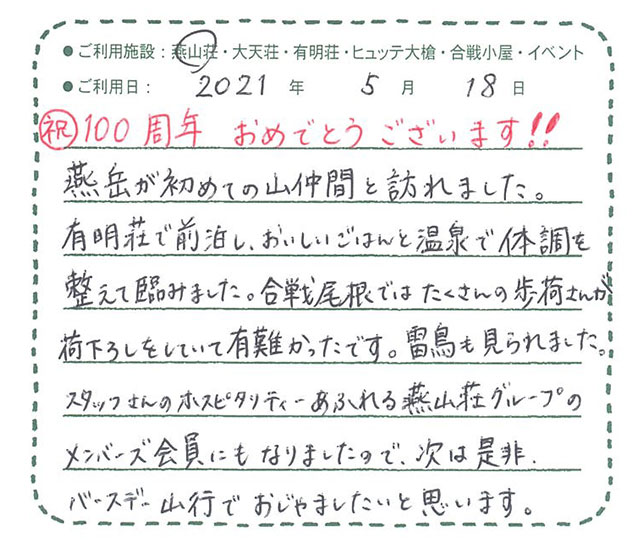 ●ご利用施設：燕山荘・大天荘・有明荘・ヒュッテ大槍・合戦小屋・イベント
●ご利用日： 2021 年 5 月 18 日
㊗100周年 おめでとうございます!!
燕岳が初めての山仲間と訪れました。
有明荘で前泊し、おいしいごはんと温泉で体調を
整えて臨みました。合戦尾根ではたくさんの歩荷さんが
荷下ろしをしていて有難かったです。雷鳥も見られました。
スタッフさんのホスピタリティーあふれる燕山荘グループの
メンバーズ会員にもなりましたので、次は是非、
バースデー山行でおじゃましたいと思います。